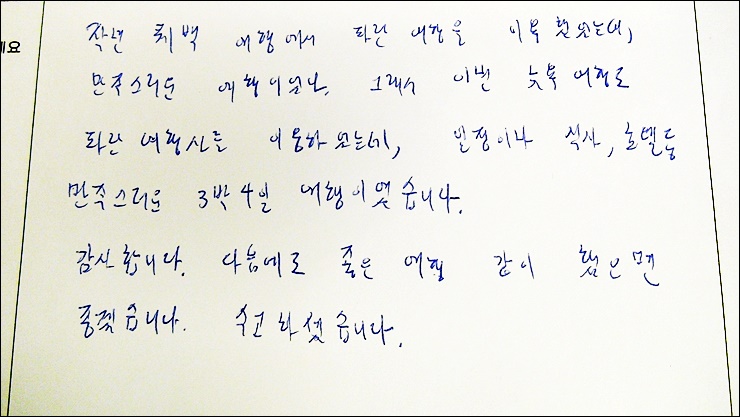 세요
작년 퇴백 여행에서 파란 여행을 이용 했었는데,
만족스러운 여행이었다. 그래서 이번 北北여행도
파란 여행사를 이용하였는데, 일정이나 식사, 호텔등
만족스러운 3박4일 여행이었습니다.
감사합니다. 다음에도 좋은 여행 같이 했으면
좋겠습니다. 수고하셨습니다.